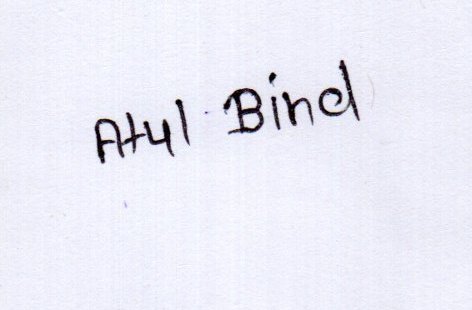 Atul Bind